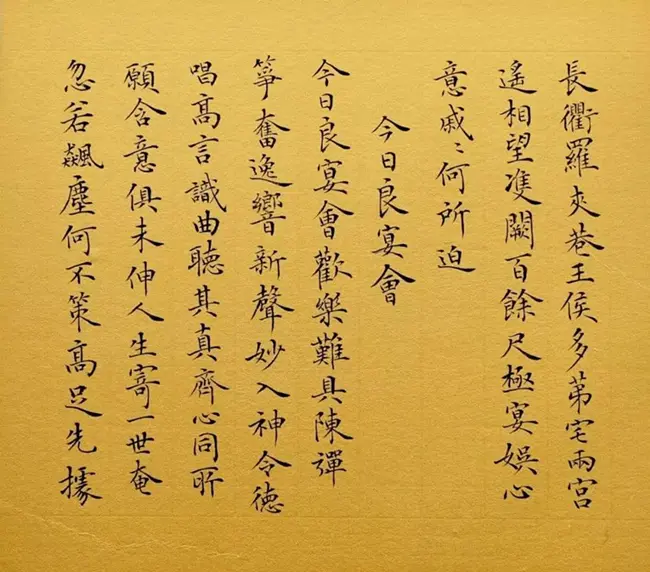 長衢羅夾巷王侯多第宅兩宫
遙相望雙闕百餘尺極宴娛心
意戚〻何所迫
今日良宴會
今日良宴會歡樂難具陳彈
箏奮逸響新聲妙入神令德
唱高言識曲聽其真齊心同所
願含意俱未伸人生寄一世奄
忽若飆塵何不策高足先據